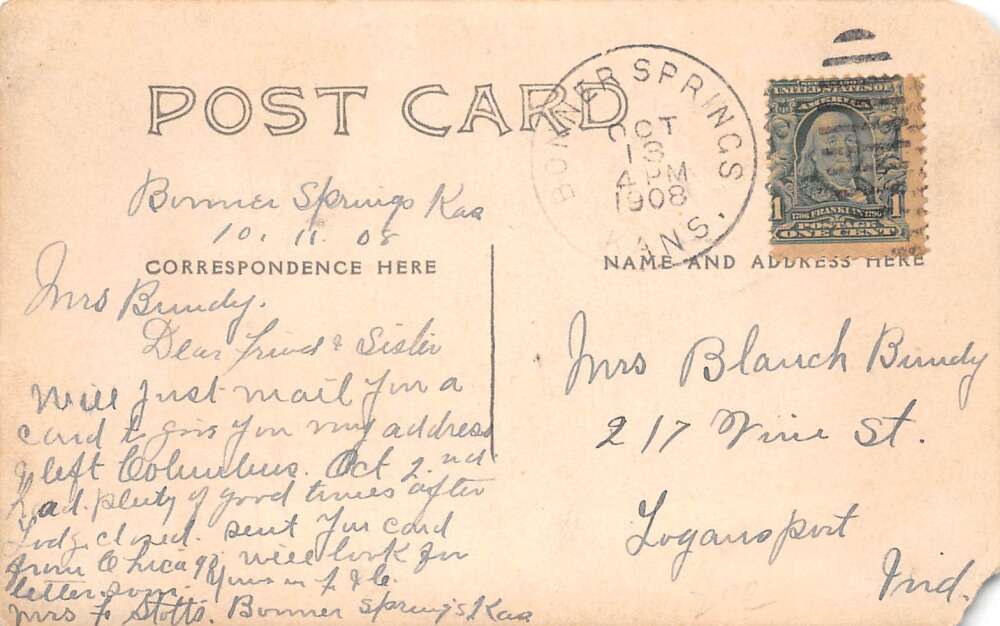 POST CARD
BONNER SPRINGS
OCT
13
4 PM
1908
KANS.
UNITED STATES OF
AMERICA
1 1
1706 FRANKLIN 1790
POSTAGE
ONE CENT
Bonner Springs Kas
10. 11. 08
CORRESPONDENCE HERE
NAME AND ADDRESS HERE
Mrs Bundy.
Dear Friend & Sister
Will Just mail you a
card to give you my address
I left Columbus. Oct 2nd
had plenty of good times after
Lodge closed. sent you card
from Chicago, will look for
letter soon. Yours in F & L.
Mrs F Stotts. Bonner Springs, Kas
Mrs Blanch Bundy
217 Vine St.
Logansport
Ind.